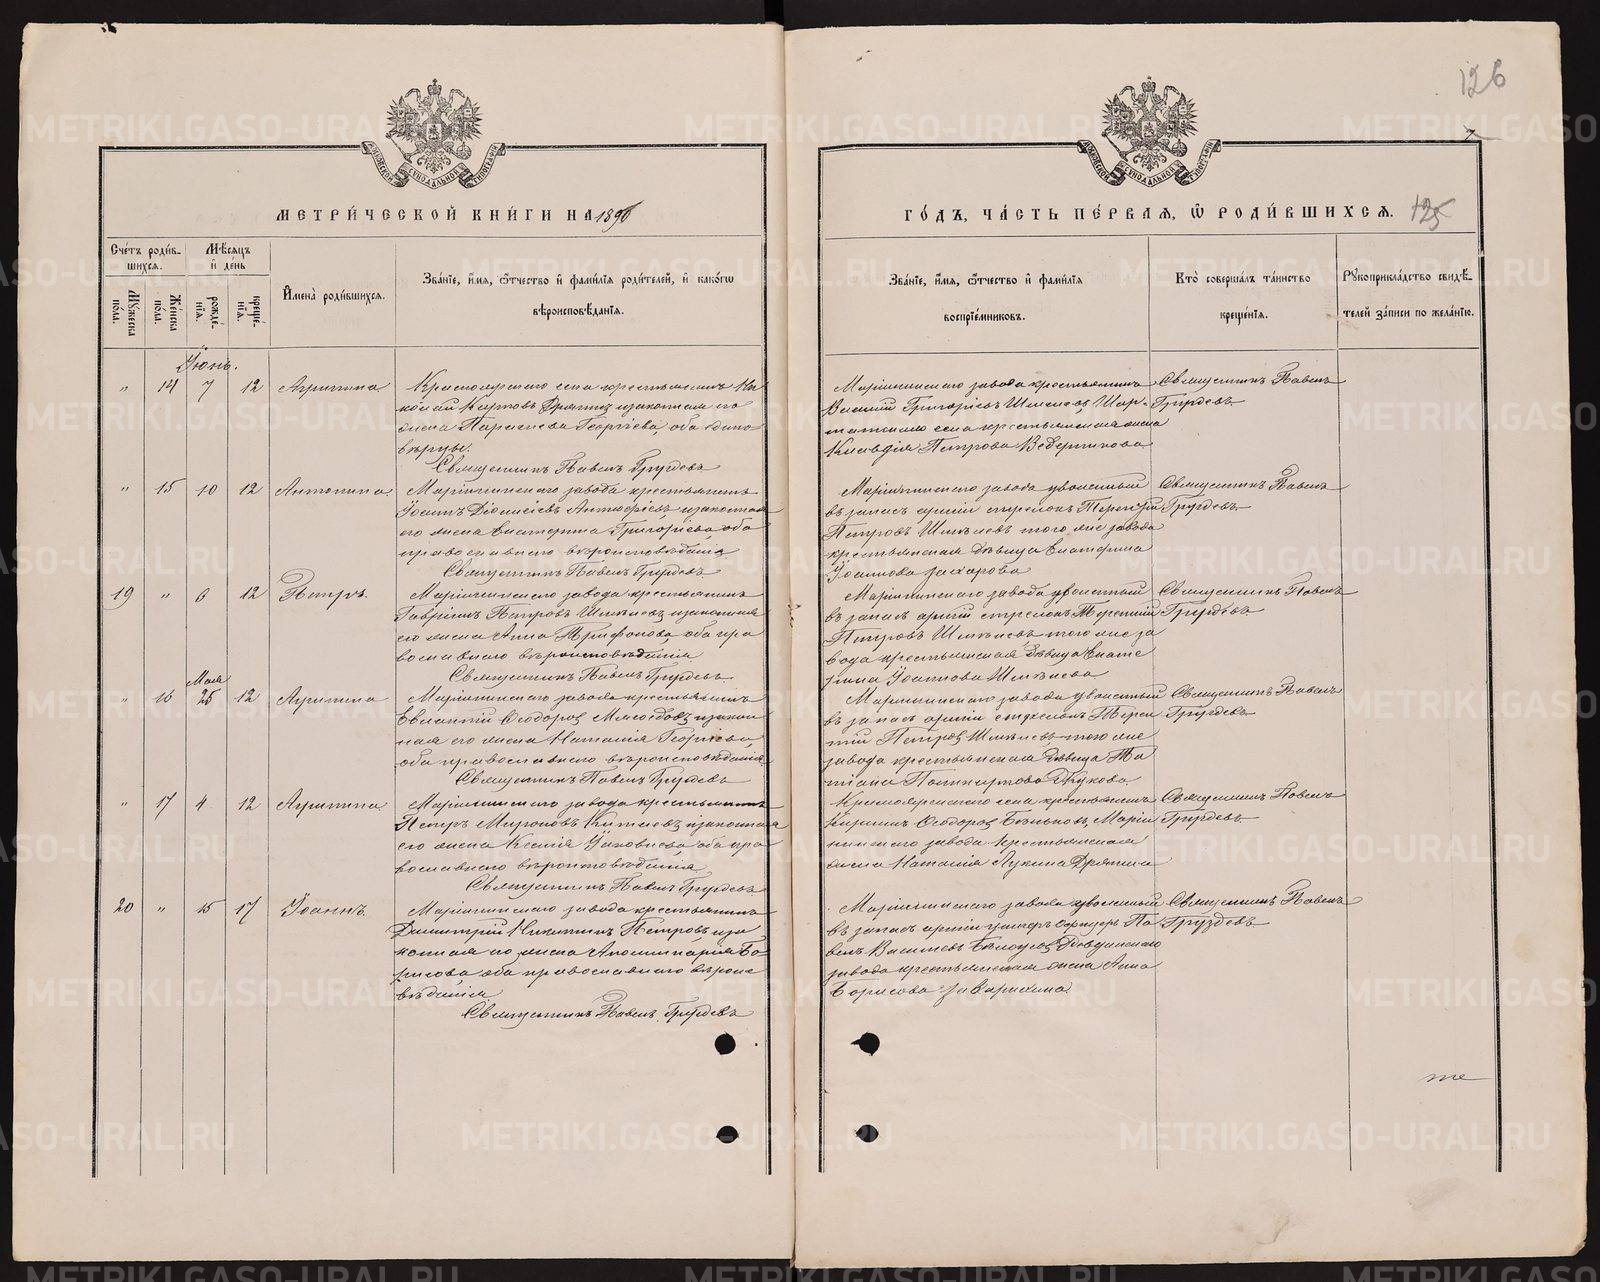 126
МОСКОВСКОЙ СѴНОДАЛЬНОЙ ТИПОГРАФІИ
МОСКОВСКОЙ СѴНОДАЛЬНОЙ ТИПОГРАФІИ
МЕТРИ́ЧЕСКОЙ КНИ́ГИ НА 1896
ГО́ДЪ, ЧА́СТЬ ПЕ́РВАЯ, Ѿ РОДИ́ВШИХСЯ. 125
Сче́тъ роди́в-
шихся.
Мѣ́сяцъ
и де́нь
Му́жеска по́ла.
Же́нска по́ла.
рожде́-нїѧ.
креще́-нїѧ.
И҆мена̀ роди́вшихся.
Зва́нїе, и҆́мѧ, ѻ҆́тчество и҆ фами́лїѧ роди́телей, и҆ како́гѡ
вѣроисповѣ́данїѧ.
Зва́нїе, и҆́мѧ, ѻ҆́тчество и҆ фами́лїѧ
воспрїе́мниковъ.
Кто̀ соверша́лъ та́инство
креще́нїѧ.
Рꙋкоприкла́дство свидѣ́-
телей за́писи по жела́нїю.
Іюнь.
" 14 7 12 Агрипина
Красноярскаго села крестьянинъ Ни
колай Карповъ Дрягинъ и законная его
жена Параскева Георгіева, оба едино
вѣрцы.
Священникъ Павелъ Груздевъ
Маріинскаго завода крестьянинъ
Василій Григорьевъ Шмелевъ, Шар-
ташскаго села крестьянская жена
Клавдія Петрова Ведерникова
Священникъ Павелъ
Груздевъ
" 15 10 12 Антонина
Маріинскаго завода крестьянинъ
Іоаннъ Діонисіевъ Антофіевъ и законная
его жена Екатерина Григоріева, оба
православнаго вѣроисповѣданія
Священникъ Павелъ Груздевъ
Маріинскаго завода уволенный
въ запасъ арміи стрелокъ Терентій
Петровъ Шмелевъ того же завода
крестьянская дѣвица Екатерина
Іоаннова Захарова
Священникъ Павелъ
Груздевъ
19 " 6 12 Петръ
Маріинскаго завода крестьянинъ
Гавріилъ Петровъ Шмелевъ и законная
его жена Анна Трифонова, оба пра
вославнаго вѣроисповѣданія
Священникъ Павелъ Груздевъ
Маріинскаго завода уволенный
въ запасъ арміи стрелокъ Терентій
Петровъ Шмелевъ, того же за
вода крестьянская дѣвица Екате
рина Іоаннова Шмелева
Священникъ Павелъ
Груздевъ
Мая
" 16 25 12 Агрипина
Маріинскаго завода крестьянинъ
Евлампій Ѳеодоровъ Мясоѣдовъ и закон
ная его жена Наталія Георгіева,
оба православнаго вѣроисповѣданія
Священникъ Павелъ Груздевъ
Маріинскаго завода уволенный
въ запасъ арміи стрелокъ Терен
тій Петровъ Шмелевъ того же
завода крестьянская дѣвица Та
тіана Жукова
Священникъ Павелъ
Груздевъ
" 17 4 12 Агрипина
Маріинскаго завода крестьянинъ
Петръ Мироновъ Китаевъ и законная
его жена Ксенія Іаковлева, оба пра
вославнаго вѣроисповѣданія
Священникъ Павелъ Груздевъ
Красноярскаго села крестьянинъ
Кириллъ Ѳеодоровъ Маріи
нскаго завода крестьянская
жена Наталія Лукина Дрягина
Священникъ Павелъ
Груздевъ
20 " 15 17 Іоаннъ
Маріинскаго завода крестьянинъ
Димитрій Никитинъ Петровъ и за
конная его жена Аполлинарія Бо
рисова, оба православнаго вѣроиспо
вѣданія
Священникъ Павелъ Груздевъ
Маріинскаго завода уволенный
въ запасъ арміи унтеръ офицеръ Па
велъ Васильевъ Ревдинскаго
завода крестьянская жена Анна
Борисова
Священникъ Павелъ
Груздевъ
METRIKI.GASO-URAL.RU